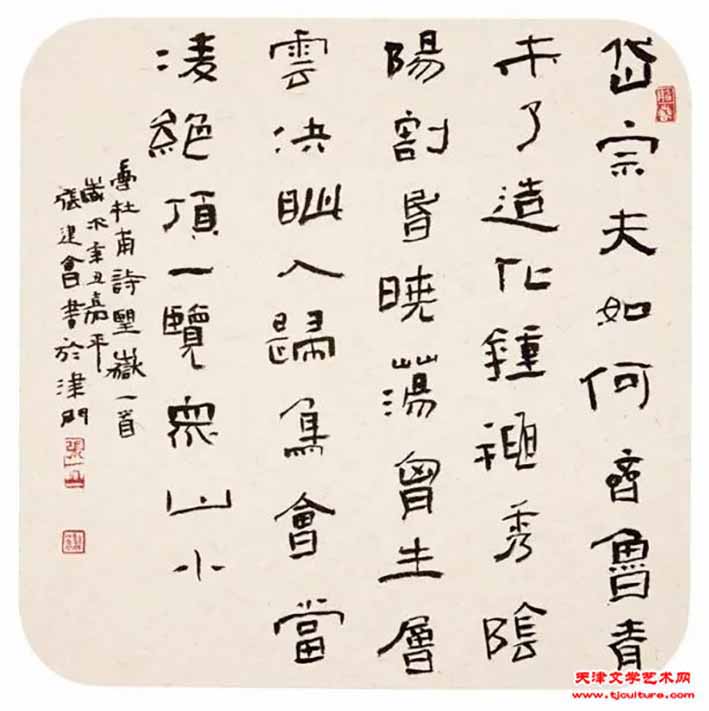 岱宗夫如何齊魯青
未了造化鍾神秀陰
陽割昏曉蕩胷生層
雲決眥入歸鳥會當
凌絶頂一覽眾山小
录杜甫詩望嶽一首
歲次辛丑嘉平
張建會書於津門
天津文学艺术网
www.tjculture.com